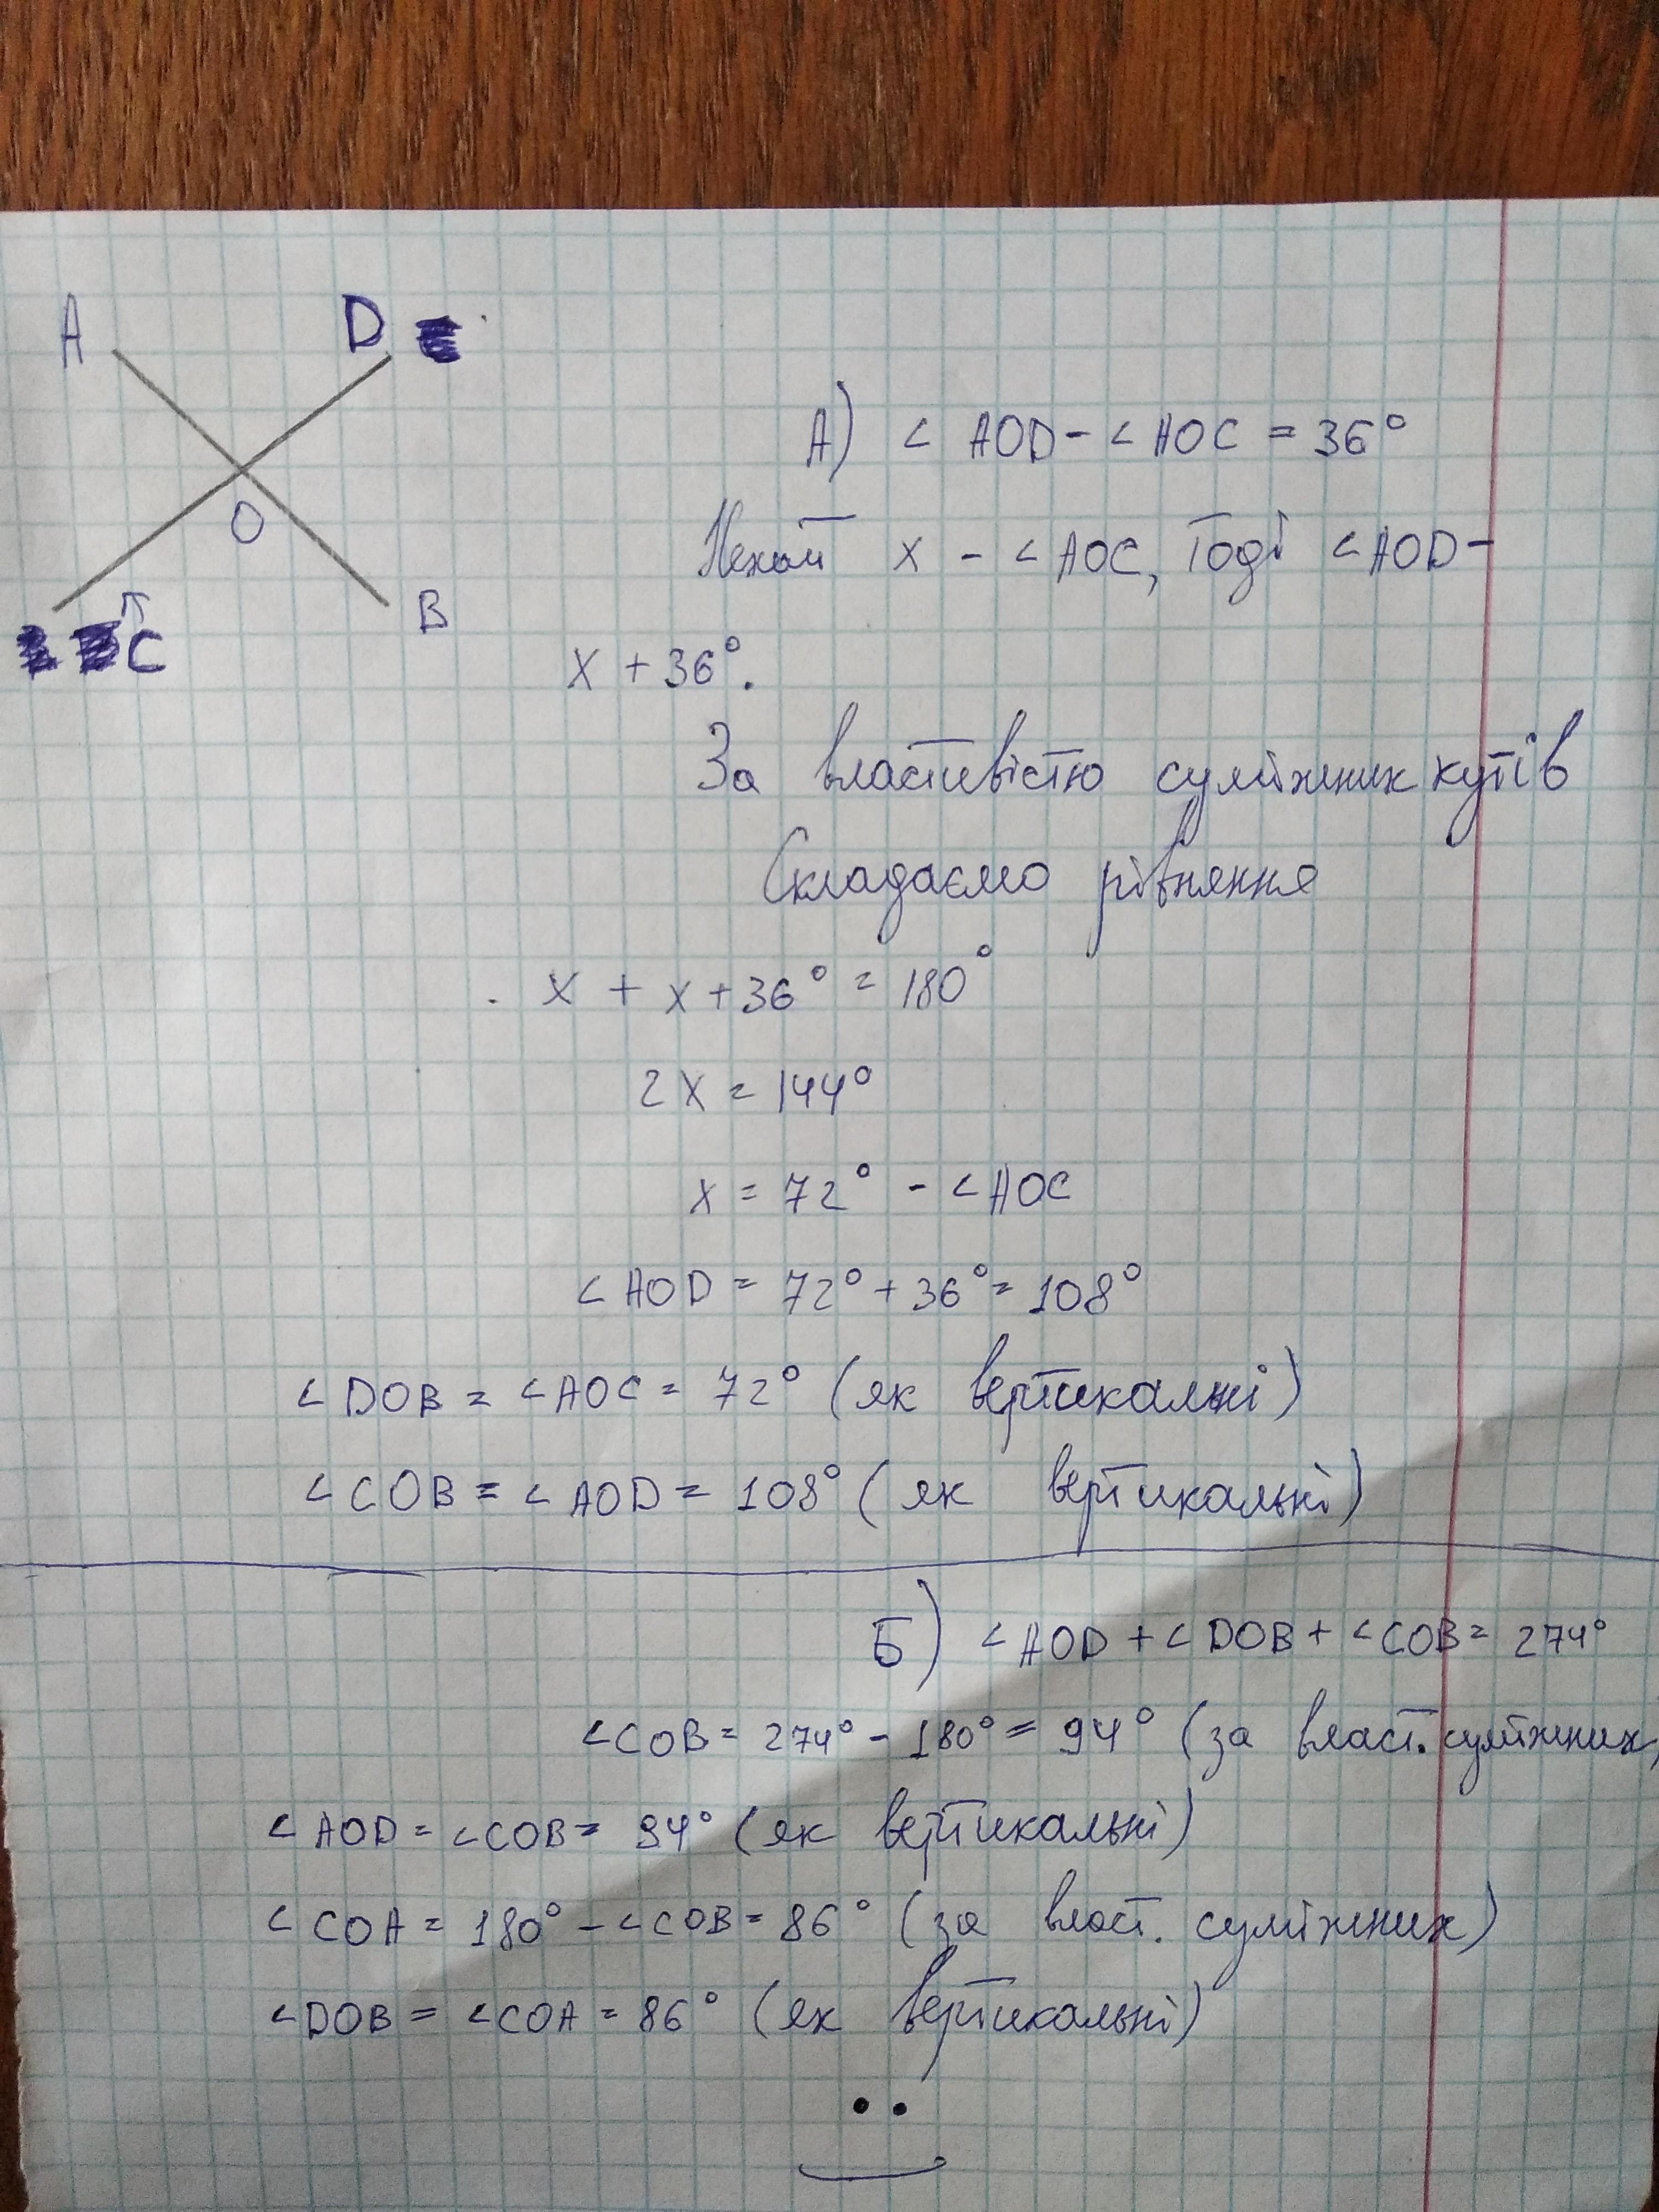 A D
O
C B
А) ∠ AOD - ∠ AOC = 36°
Нехай x - ∠AOC, тоді ∠AOD -
x + 36°.
За властивістю суміжних кутів
Складаємо рівняння
x + x + 36° = 180°
2x = 144°
x = 72° - ∠AOC
∠AOD = 72° + 36° = 108°
∠DOB = ∠AOC = 72° (як вертикальні)
∠COB = ∠AOD = 108° (як вертикальні)
Б) ∠AOD + ∠DOB + ∠COB = 274°
∠COB = 274° - 180° = 94° (за власт. суміжних)
∠AOD = ∠COB = 94° (як вертикальні)
∠COA = 180° - ∠COB = 86° (за власт. суміжних)
∠DOB = ∠COA = 86° (як вертикальні)